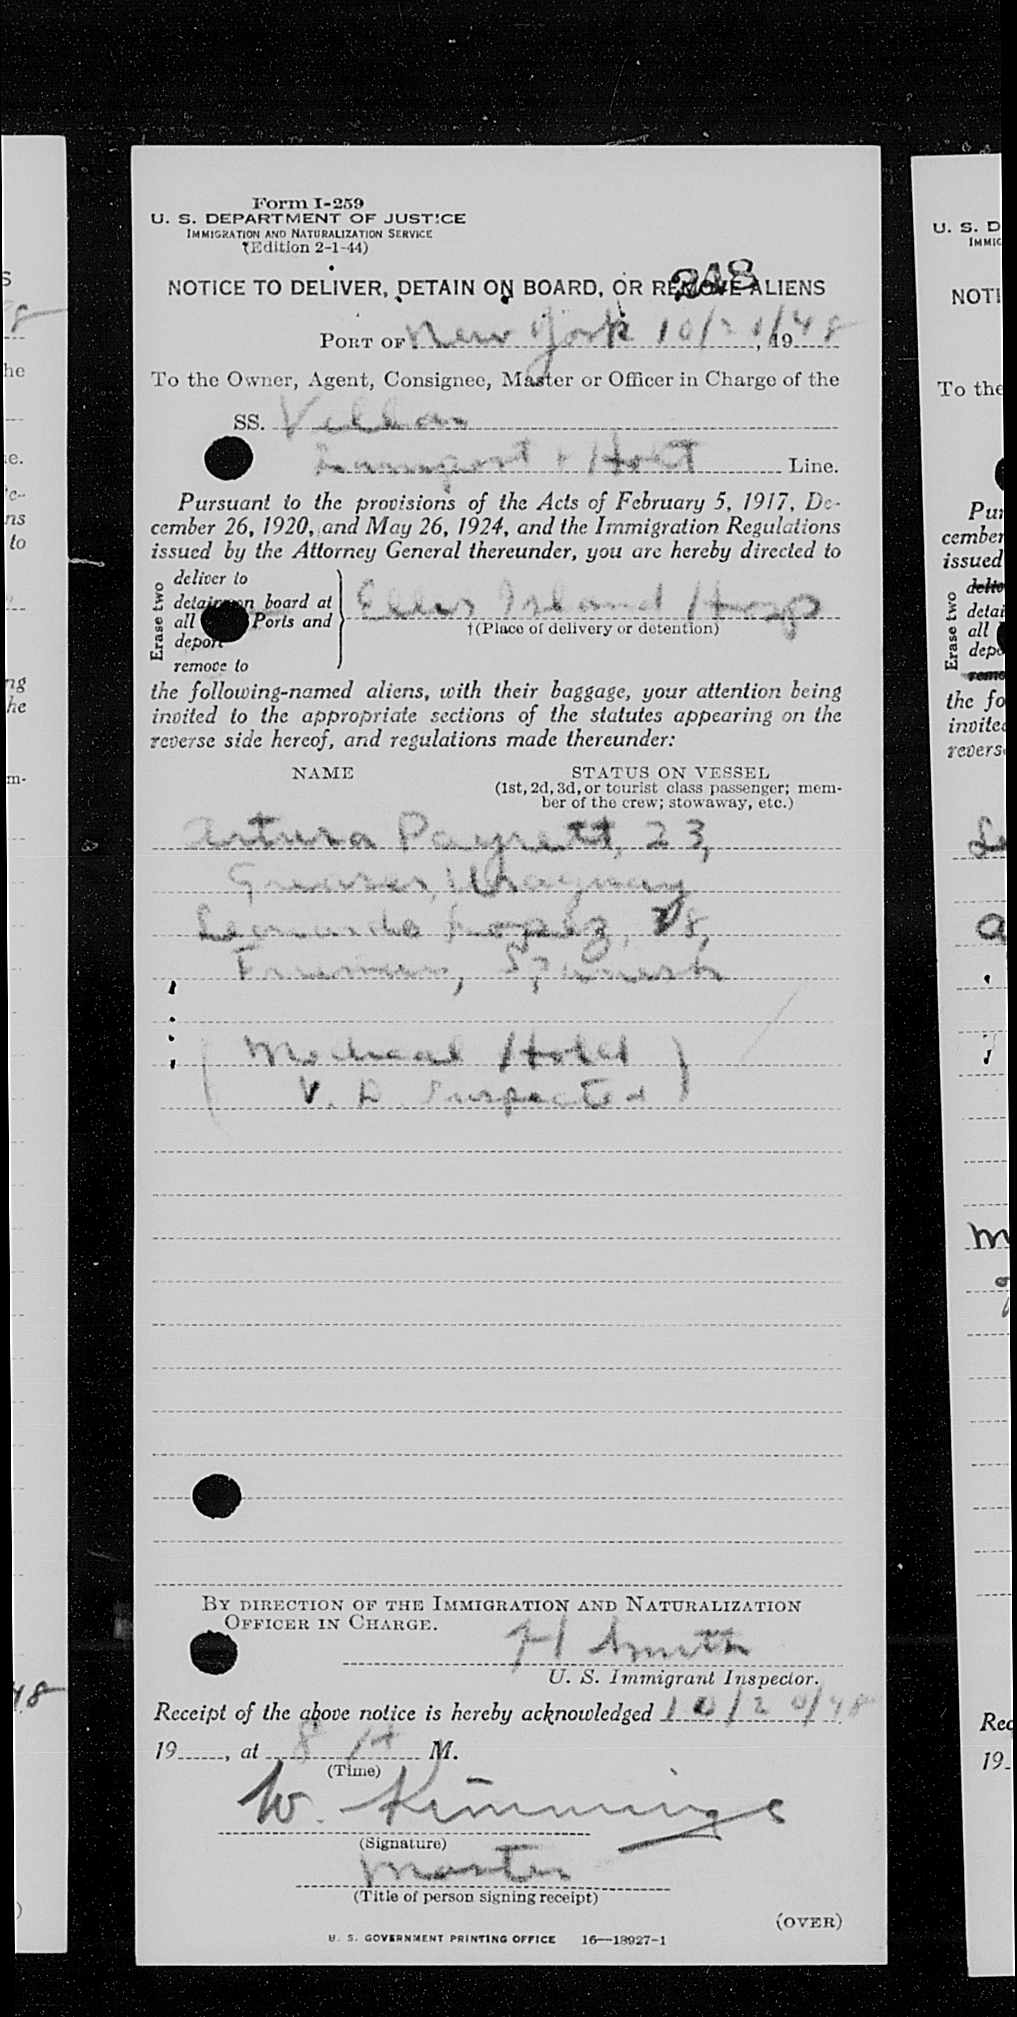 Form I-259
U. S. DEPARTMENT OF JUSTICE
IMMIGRATION AND NATURALIZATION SERVICE
(Edition 2-1-44)
NOTICE TO DELIVER, DETAIN ON BOARD, OR REMOVE ALIENS
PORT OF New York 10/20/, 1948
To the Owner, Agent, Consignee, Master or Officer in Charge of the
SS.
Lamport + Holt Line.
Pursuant to the provisions of the Acts of February 5, 1917, De-
cember 26, 1920, and May 26, 1924, and the Immigration Regulations
issued by the Attorney General thereunder, you are hereby directed to
Erase two
deliver to
detain on board at
all Ports and
deport
remove to
Ellis Island Hosp
†(Place of delivery or detention)
the following-named aliens, with their baggage, your attention being
invited to the appropriate sections of the statutes appearing on the
reverse side hereof, and regulations made thereunder:
NAME STATUS ON VESSEL
(1st, 2d, 3d, or tourist class passenger; mem-
ber of the crew; stowaway, etc.)
Arturo Payrett, 23,
Greaser, Uruguay
Leonardo Lopez, 28,
Fireman, Spanish
(Medical Hold)
(V. D. Suspected)
BY DIRECTION OF THE IMMIGRATION AND NATURALIZATION
OFFICER IN CHARGE.
H Smith
U. S. Immigrant Inspector.
Receipt of the above notice is hereby acknowledged 10/20/48
19, at 8 A M.
(Time)
W. Kimmings
(Signature)
Master
(Title of person signing receipt)
(OVER)
U. S. GOVERNMENT PRINTING OFFICE 16—18927-1